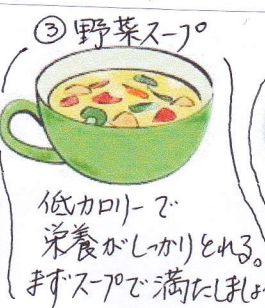 ③野菜スープ
低カロリーで
栄養がしっかりとれる。
まずスープで満たしましょ